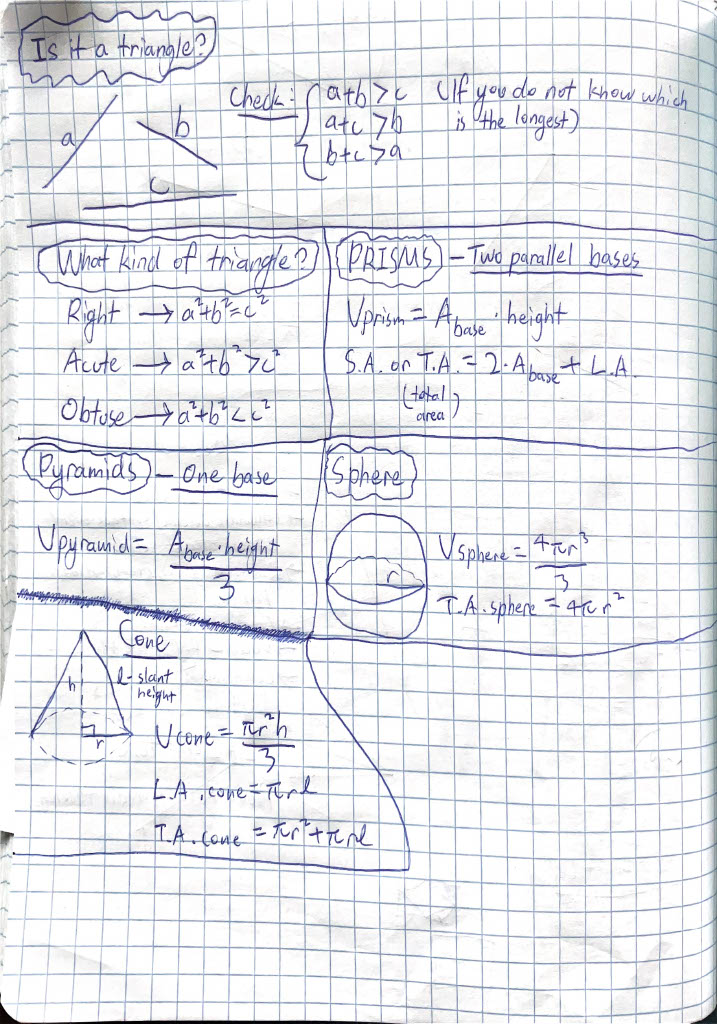 Is it a triangle?
a
b
c
Check: { a+b>c (If you do not know which
a+c>b is the longest)
b+c>a
What kind of triangle?
Right → a²+b²=c²
Acute → a²+b²>c²
Obtuse → a²+b²<c²
PRISMS - Two parallel bases
Vprism = A base · height
S.A. or T.A. = 2·A base + L.A.
(total
area)
Pyramids - One base
Vpyramid = A base · height / 3
Sphere
r
V sphere = 4πr³ / 3
T.A. sphere = 4πr²
Cone
h
l - slant
height
r
V cone = πr²h / 3
L.A. cone = πrl
T.A. cone = πr²+πrl